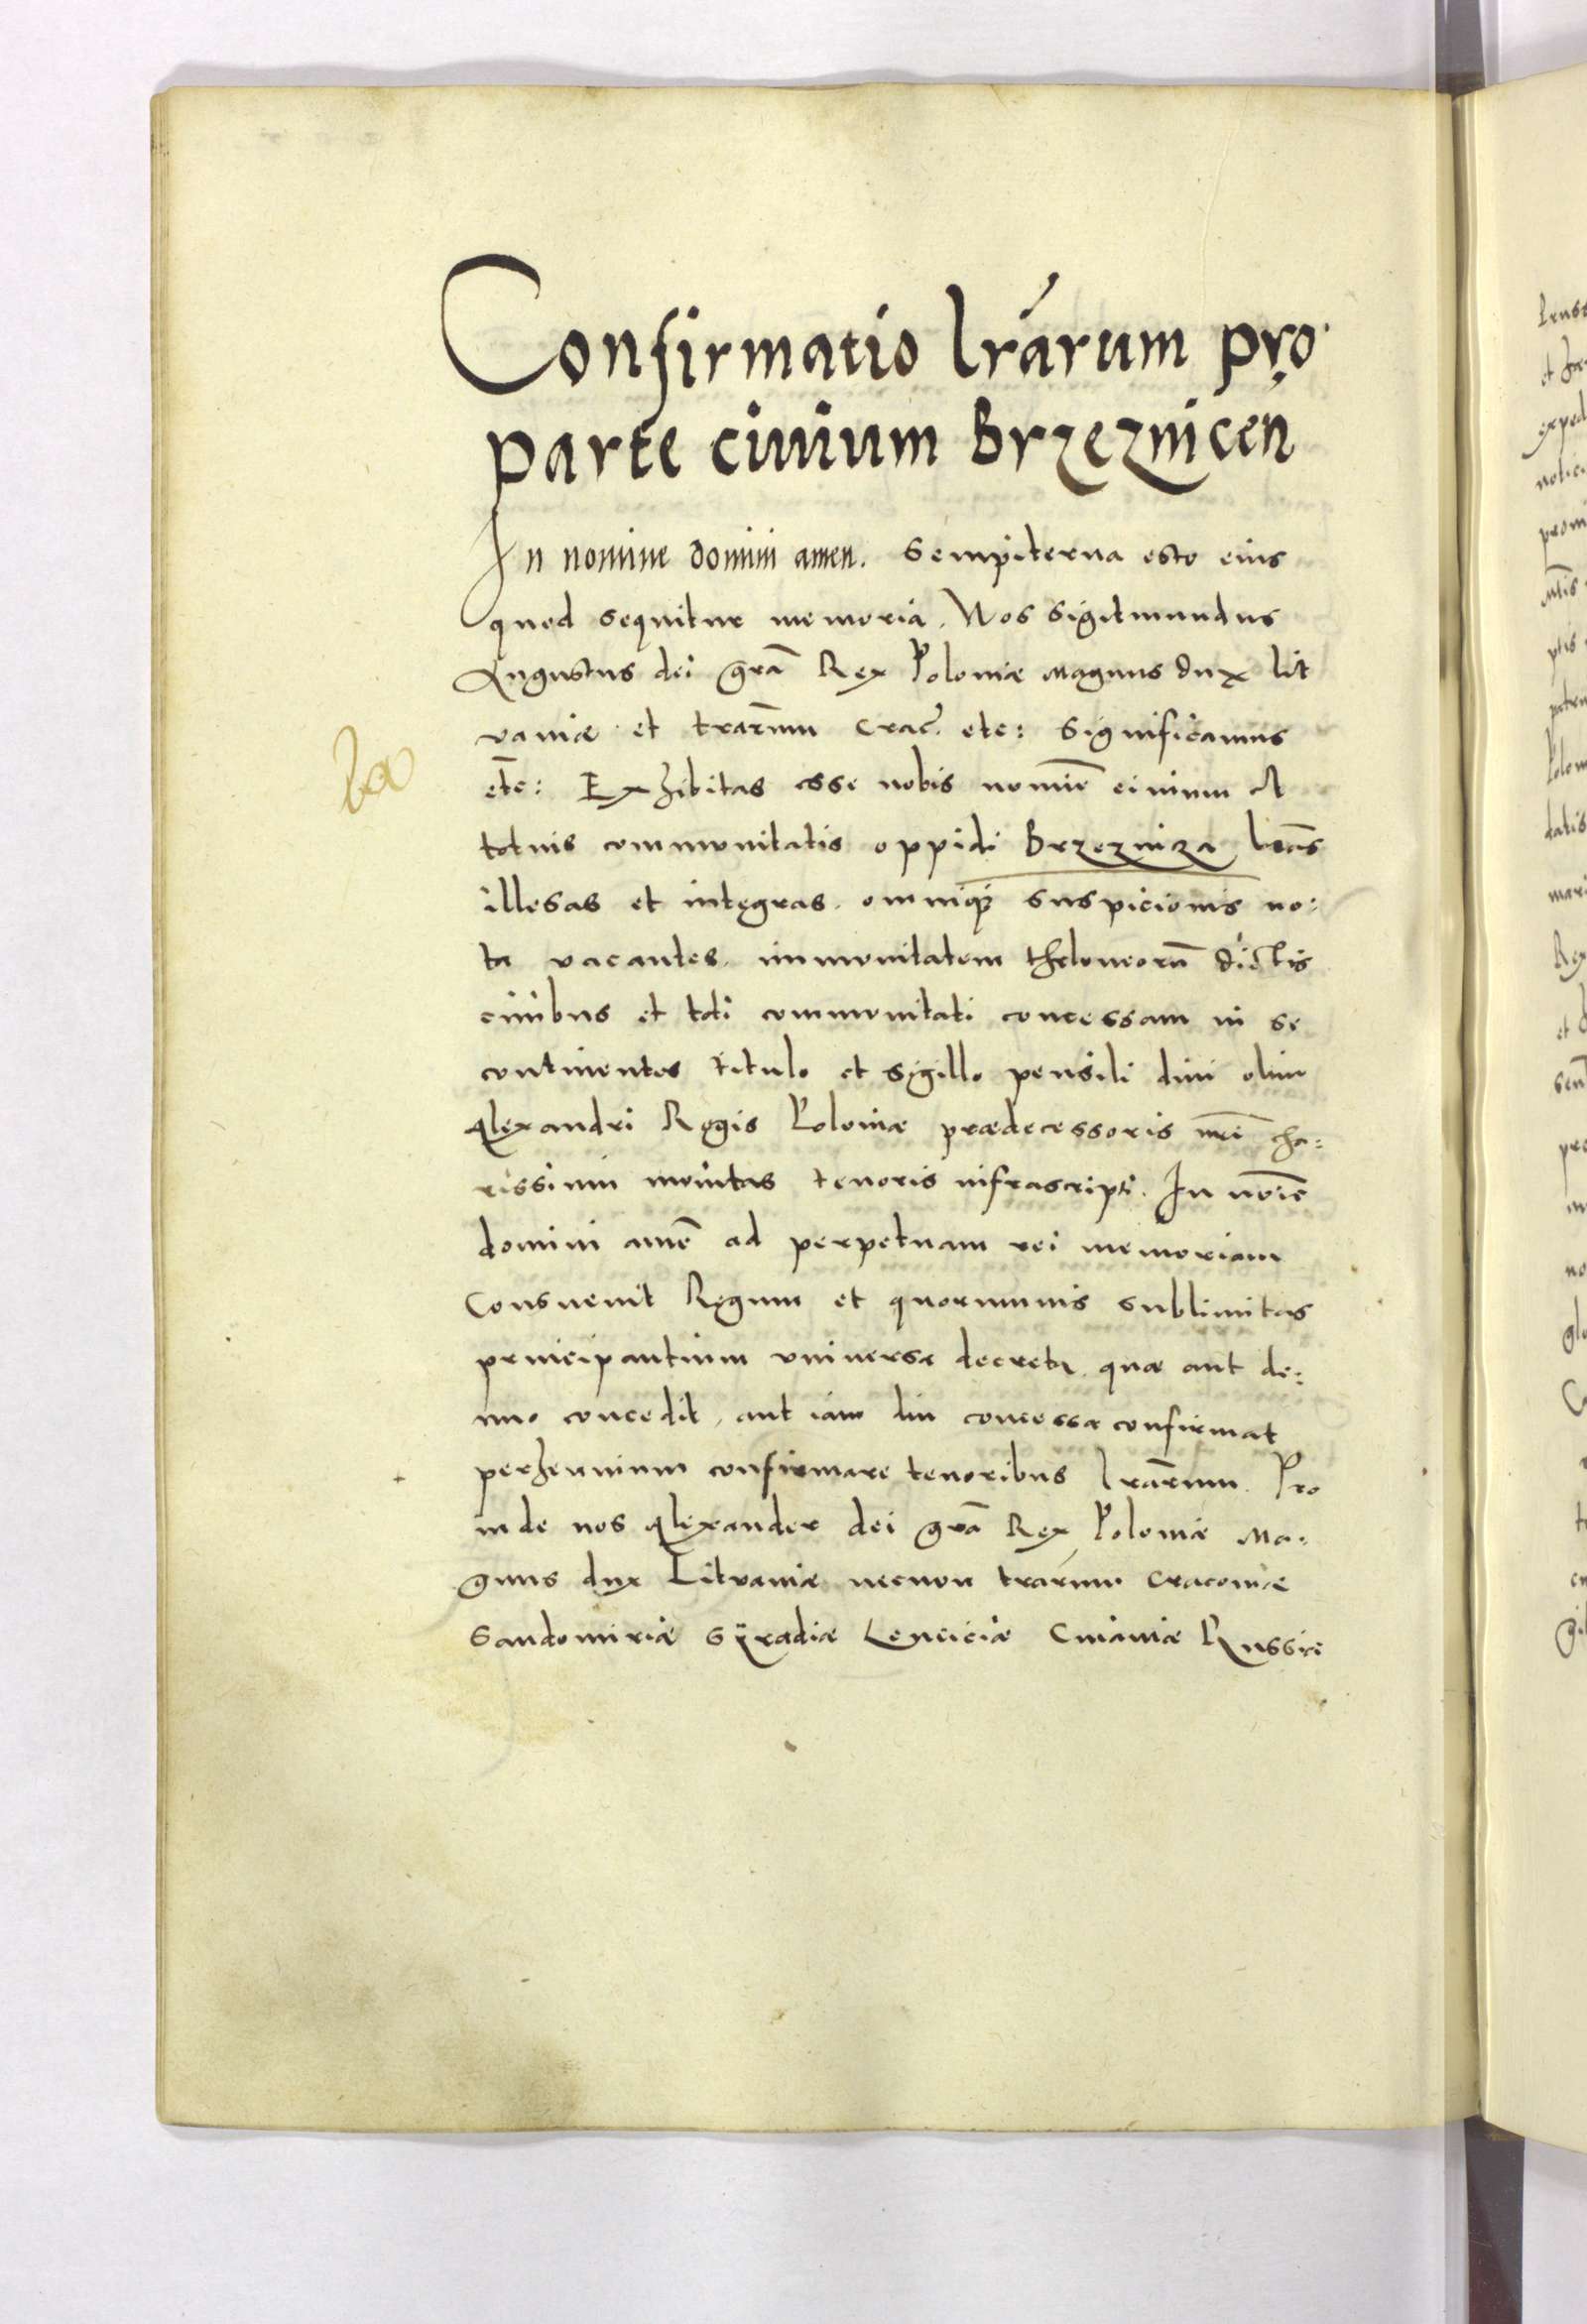 Confirmatio lrarum pro
parte ciuium Brzeznicen
In nomine domini amen. Sempiterna esto eius
quod sequitur memoria. Nos Sigismundus
Augustus dei gra Rex Poloniæ Magnus dux Lit
vaniæ et trarum Crac. etc: Significamus
etc: Exhibitas esse nobis nomine ciuium A
totius communitatis oppidi Brzezniza lras
illesas et integras. omnique suspicionis no:
ta vacantes. immunitatem theloneoru dictis
ciuibus et toti communitati concessam in se
continentes titulo et sigillo pensili diui olim
Alexandri Regis Poloniæ prædecessoris nri cha:
rissimi munitas tenoris infrascripti. In noie
domini ame ad perpetuam rei memoriam
Consueuit Regum et quorumuis sublimitas
principantium vniuersa decreta quæ aut de:
nuo concedit, aut iam diu concessa confirmat
perhennium confirmare tenoribus lrarum. Pro
inde nos Alexander dei gra Rex Poloniæ Ma:
gnus dux Litvaniæ necnon trarum Cracouiæ
Sandomiriæ Syradiæ Lenciciæ Cuiauiæ Russiæ